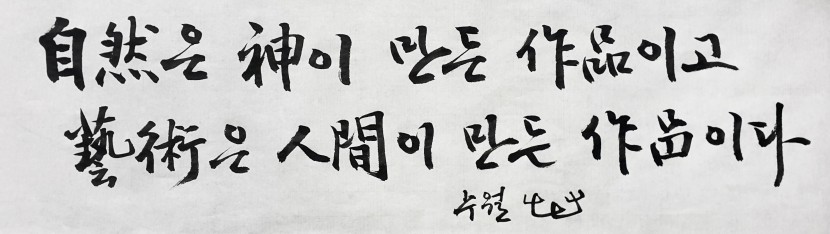 自然은 神이 만든 作品이고
藝術은 人間이 만든 作品이다
수월